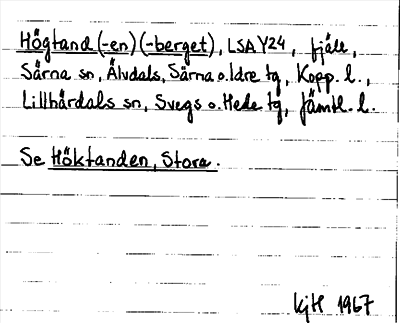 Högtand (-en) (-berget), LSA Y24, fjäll,
Särna sn, Älvdals, Särna o. Idre tg, Kopp. l.,
Lillhärdals sn, Svegs o. Hede tg, Jämtl. l.
Se Höktanden, Stora.
KjH 1967